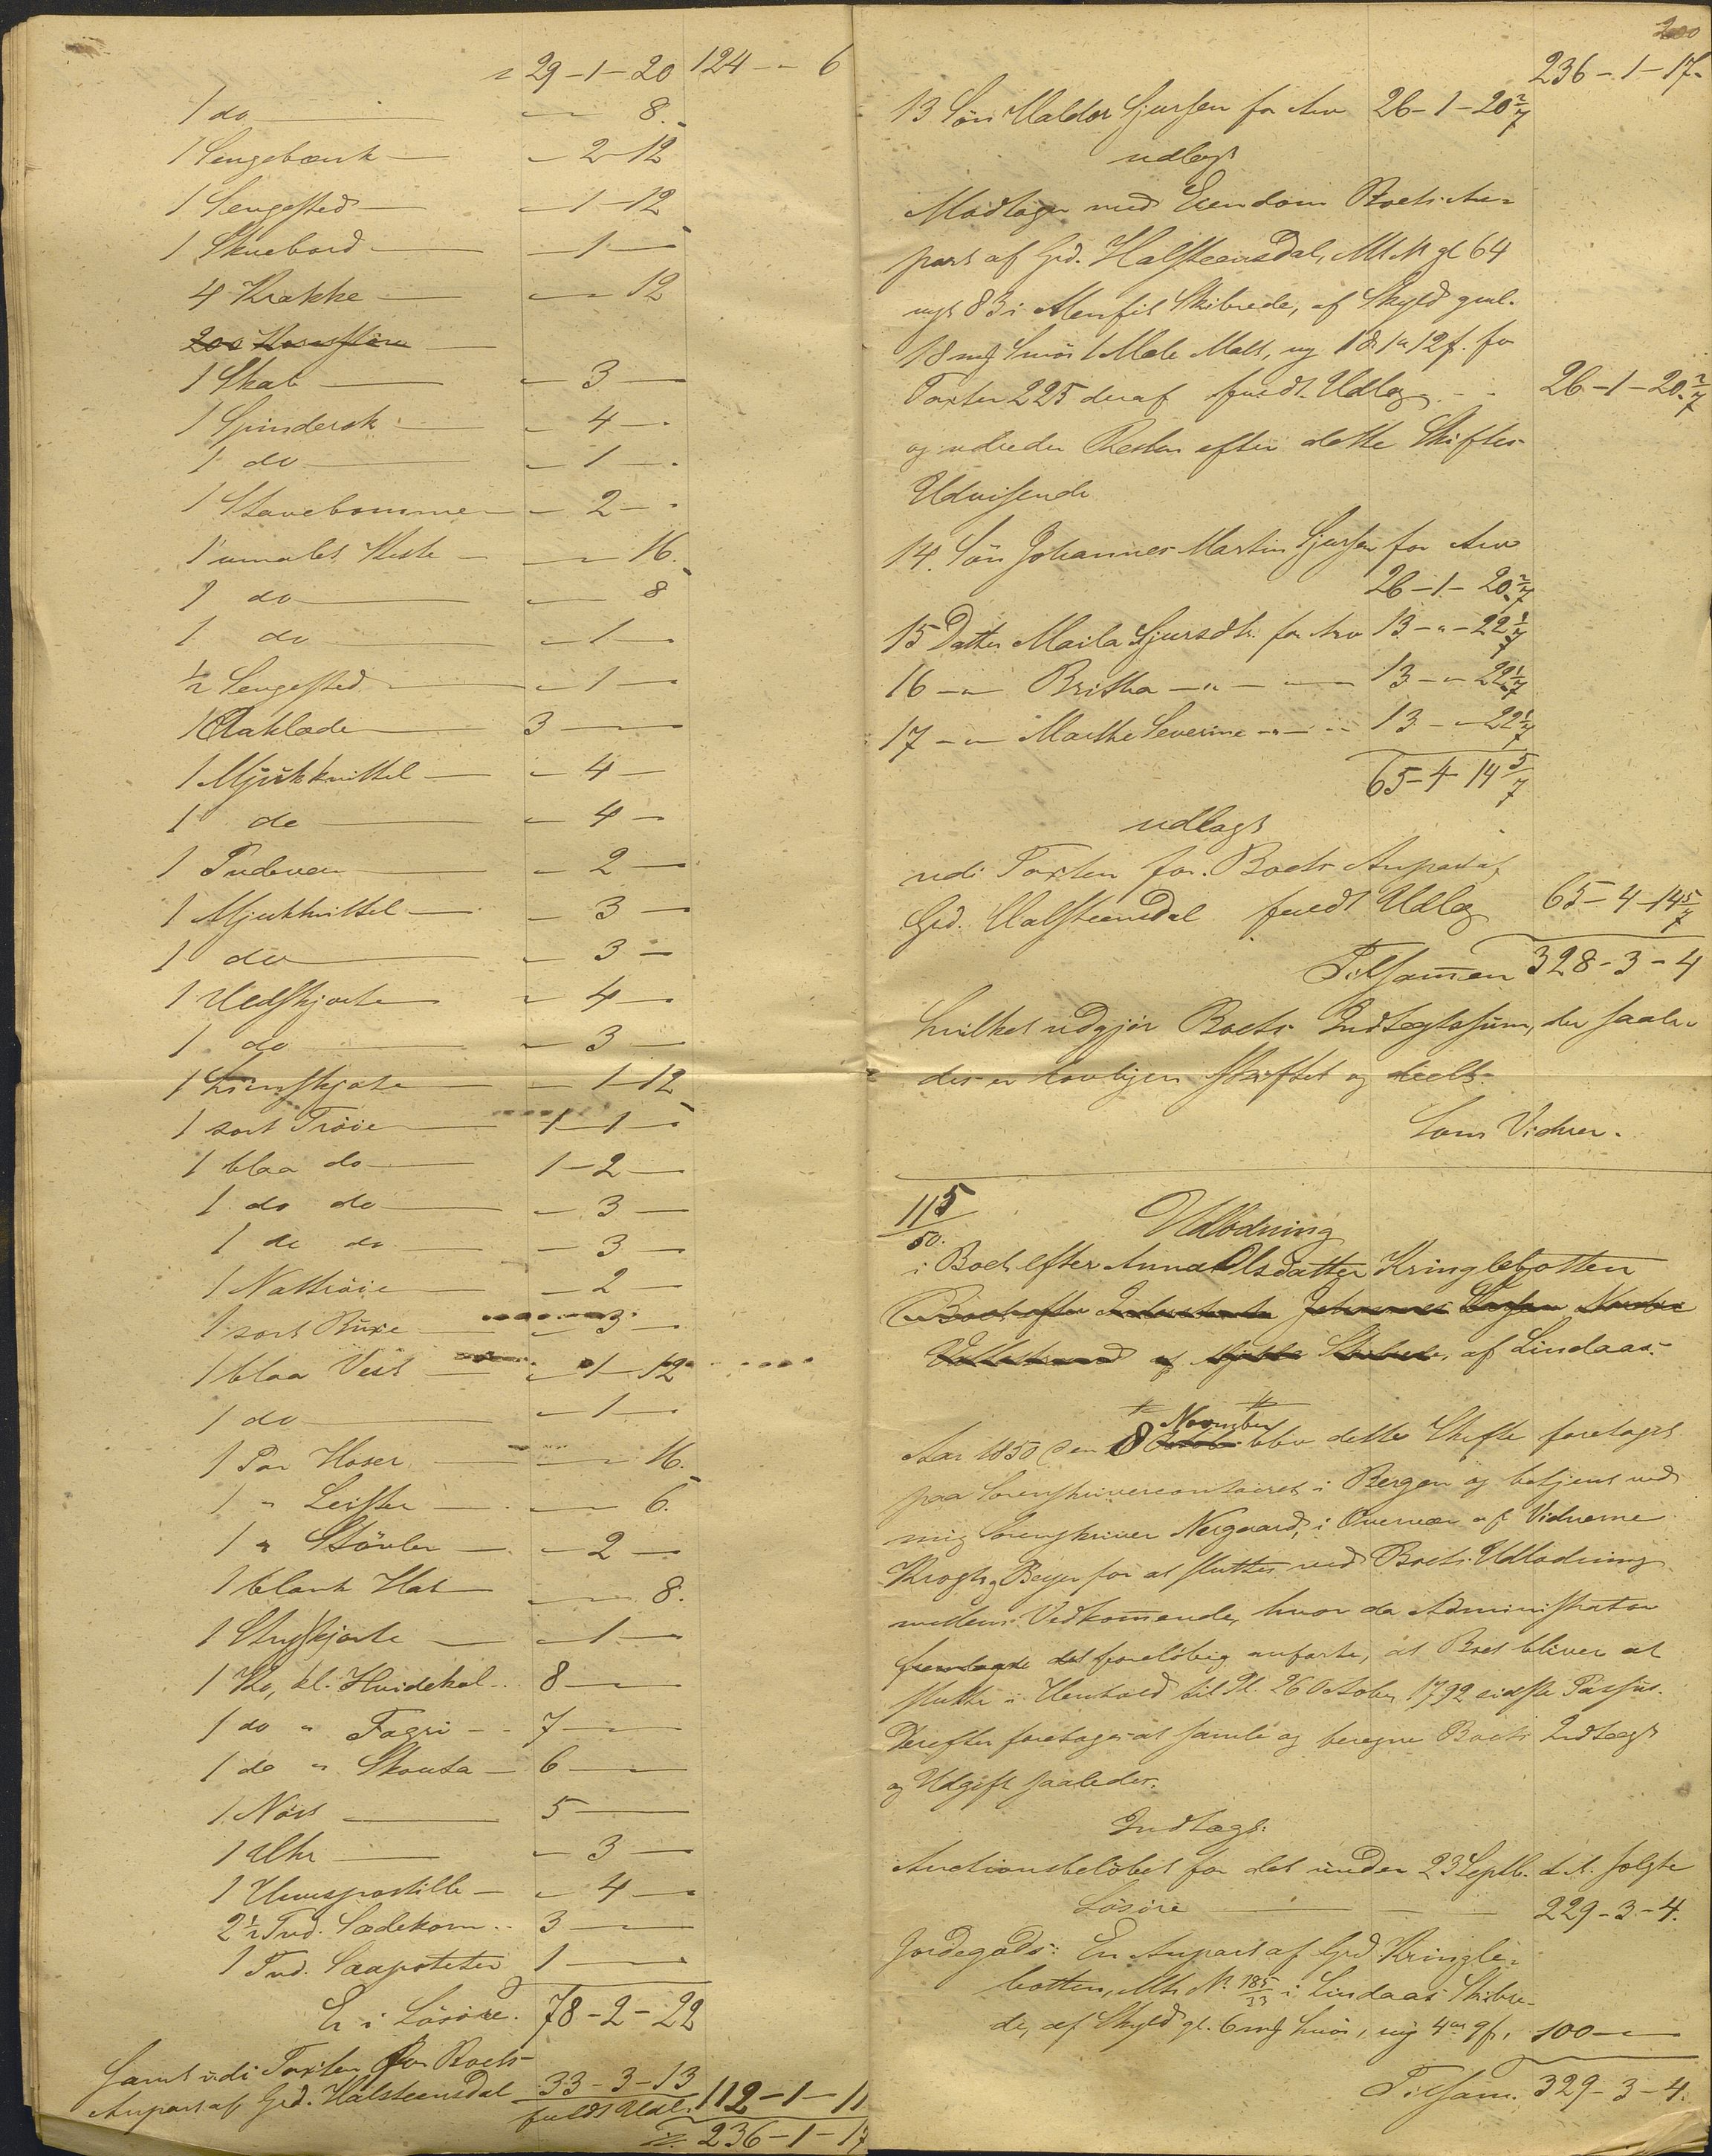 29-1-20 124 - " 6
1 do — " — 8.
1 Sengebænk — " 2-12
1 Sengested — " 1-12
1 Skuebord — " 1 —
4 Krakke — " — 12
1 Skab — " 3 —
1 Spinderok — " 4 —
1 do — " 1 —
1 Stavebomme — " 2 —
1 umalet Kiste — " — 16.
1 do — " — 8
1 do — " 1 —
½ Sengested — " 1 —
1 Aaklæde — 3 —
1 Mjukhvittel — " 4 —
1 do — " 4 —
1 Pudevaar — " 2 —
1 Mjukhvittel — " 3 —
1 do — " 3 —
1 Uldskjorte — " 4 —
1 do — " 3 —
1 Linskjorte — " 1-12
1 sort Trøie — 1-1 —
1 blaa do — 1-2 —
1 do do — " 3 —
1 do do — " 3 —
1 Nattrøie — " 2 —
1 sort Buxe — " 3 —
1 blaa Vest — " 1-12
1 do — " 1 —
1 Par Hoser — " — 16.
1 " Leister — " — 6.
1 " Støvler — " 2 —
1 blank Hat — " — 8.
1 Stryskjorte — " 1 —
1 Ko, kl. Hvidekol — 8 —
1 do " Fagri — 7 —
1 do " Skouta — 6 —
1 Nøst — 5 —
1 Uhr — " 3 —
1 Huuspostille — " 4 —
2½ Tnd. Sædekorn — 3 —
1 Tnd. Sæapoteter 1 —
Er i Løsøre. 78-2-22
Samt udi Taxten for Boets
Anpart af Grd. Halsteensdal 33-3-13
fuldt Udl. 112-1-11
236-1-17
200
236-1-17.
13 Søn Haldor Sjursen for Arv 26-1-20 2/7
udlagt
Modtager med Eiendom Boets An-
part af Grd. Halsteensdal, Mt. N gl 64
nyt 83 i Skibrede, af Skyld gml.
18 mk Smør 1 Mæle Malt, ny 1 d. 1 ort 12 s. for
Taxten 225 deraf fuldt Udlæg - - 26-1-20 2/7
og udreder Resten efter dette Skiftes
Udvisende
14. Søn Johannes Martin Sjursen for Arv
26-1-20 2/7
15 Datter Marta Sjursdtr. for Arv 13-"-22 1/7
16 — " Britha — " — 13-"-22 1/7
17 — " Marthe Severine " — 13-"-22 1/7
65-4-14 5/7
udlagt
udi Taxten for Boets Anpart af
Grd. Halsteensdal fuldt Udlæg 65-4-14 5/7
Tilsammen 328-3-4
hvilket udgjør Boets Indtægtssum, der saale-
des er lovligen skiftet og deelt.
Som Vidner.
115/50.
Udlodning
i Boet efter Anna Olsdatter Kringlebotten
af Lindaas.
November
Aar 1850 den 8 blev dette Skifte foretaget
paa Sorenskrivercontoiret i Bergen og betjent ved
mig Sorenskriver Nergaard, i Overvær af Vidnerne
Krogh og Beyer for at sluttes ved Boets Udlodning
mellem Vedkommende, hvor da Administrator
foreløbig anførte, at Boet bliver at
slutte i Henhold til Pl. 26 October 1792 sidste Passus.
Derefter foretages at samle og beregne Boets Indtægt
og Udgift saaledes.
Indtægt:
Auctionsbeløbet for det under 23 Septb. d. A. solgte
Løsøre — 229-3-4.
Jordegods: En Anpart af Grd Kringle-
botten, Mtr. No. 185/33 i Lindaas Skibre-
de, af Skyld gl. 6 mk Smør, ny 4 ort 9 s. 100 —
Tilsam. 329-3-4.